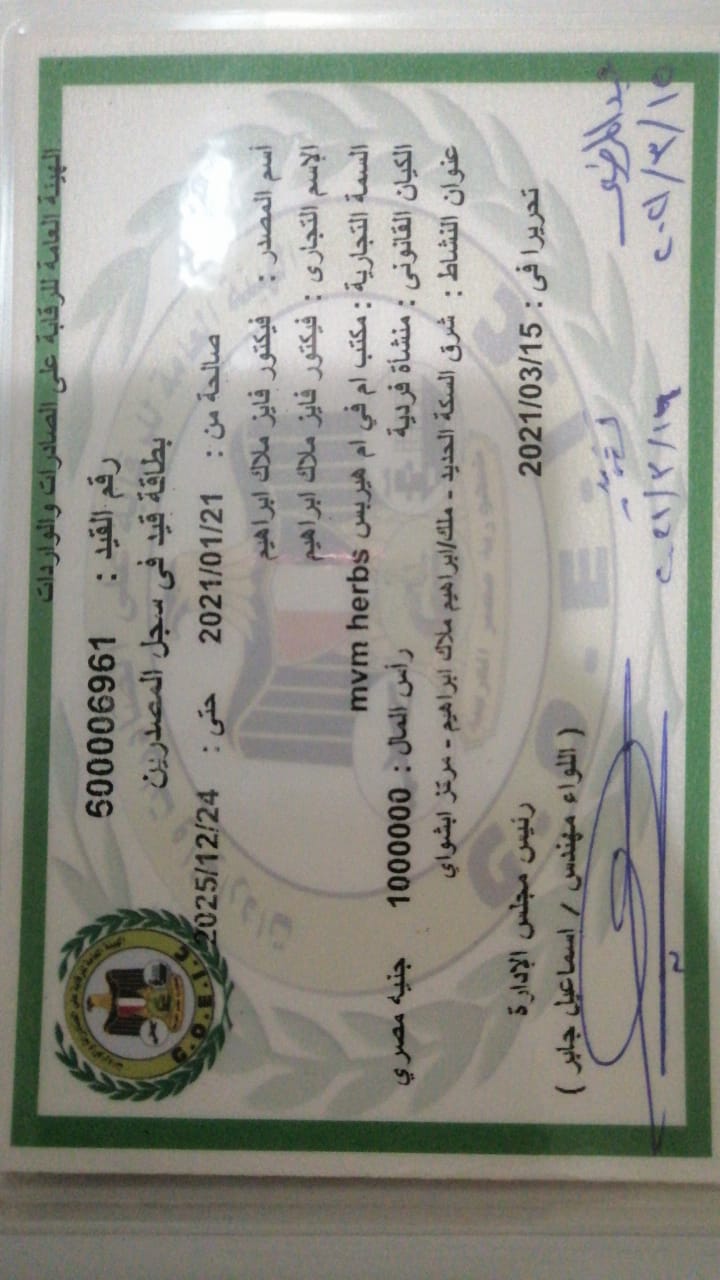 الهيئة العامة للرقابة على الصادرات والواردات
رقم القيد : 600006961
بطاقة قيد فى سجل المصدرين
صالحة من : 2021/01/21 حتى : 2025/12/24
أسم المصدر : فيكتور فايز ملاك ابراهيم
الإسم التجارى : فيكتور فايز ملاك ابراهيم
السمة التجارية : مكتب ام في ام هيربس/mvm herbs
الكيان القانونى : منشأة فردية رأس المال : 1000000 جنيه مصري
عنوان النشاط : شرق السكة الحديد - ملك/ابراهيم ملاك ابراهيم - مركز ابشواي
تحريرا فى : 2021/03/15
رئيس مجلس الإدارة
( اللواء مهندس / اسماعيل جابر )
G.O.E.I.C